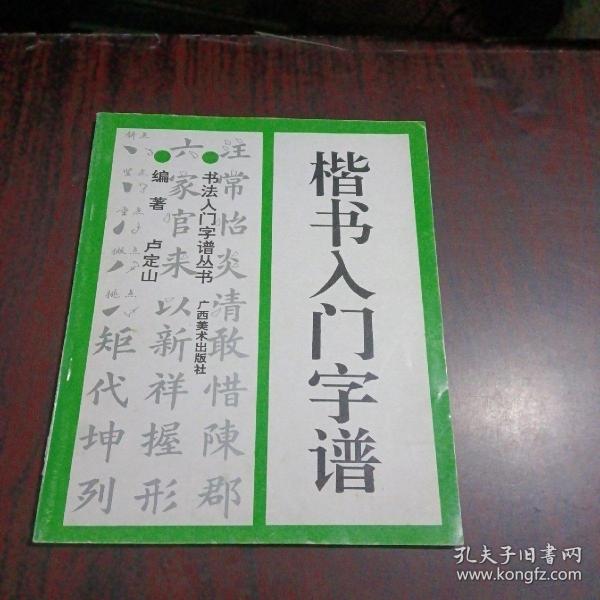 楷书入门字谱
书法入门字谱丛书
广西美术出版社
编著 卢定山
注常怡炎清敢惜陳郡
六家官来以新祥握形
矩代坤列
斜点
竖点
垂点
撇点
挑点
孔夫子旧书网
www.kongfz.com